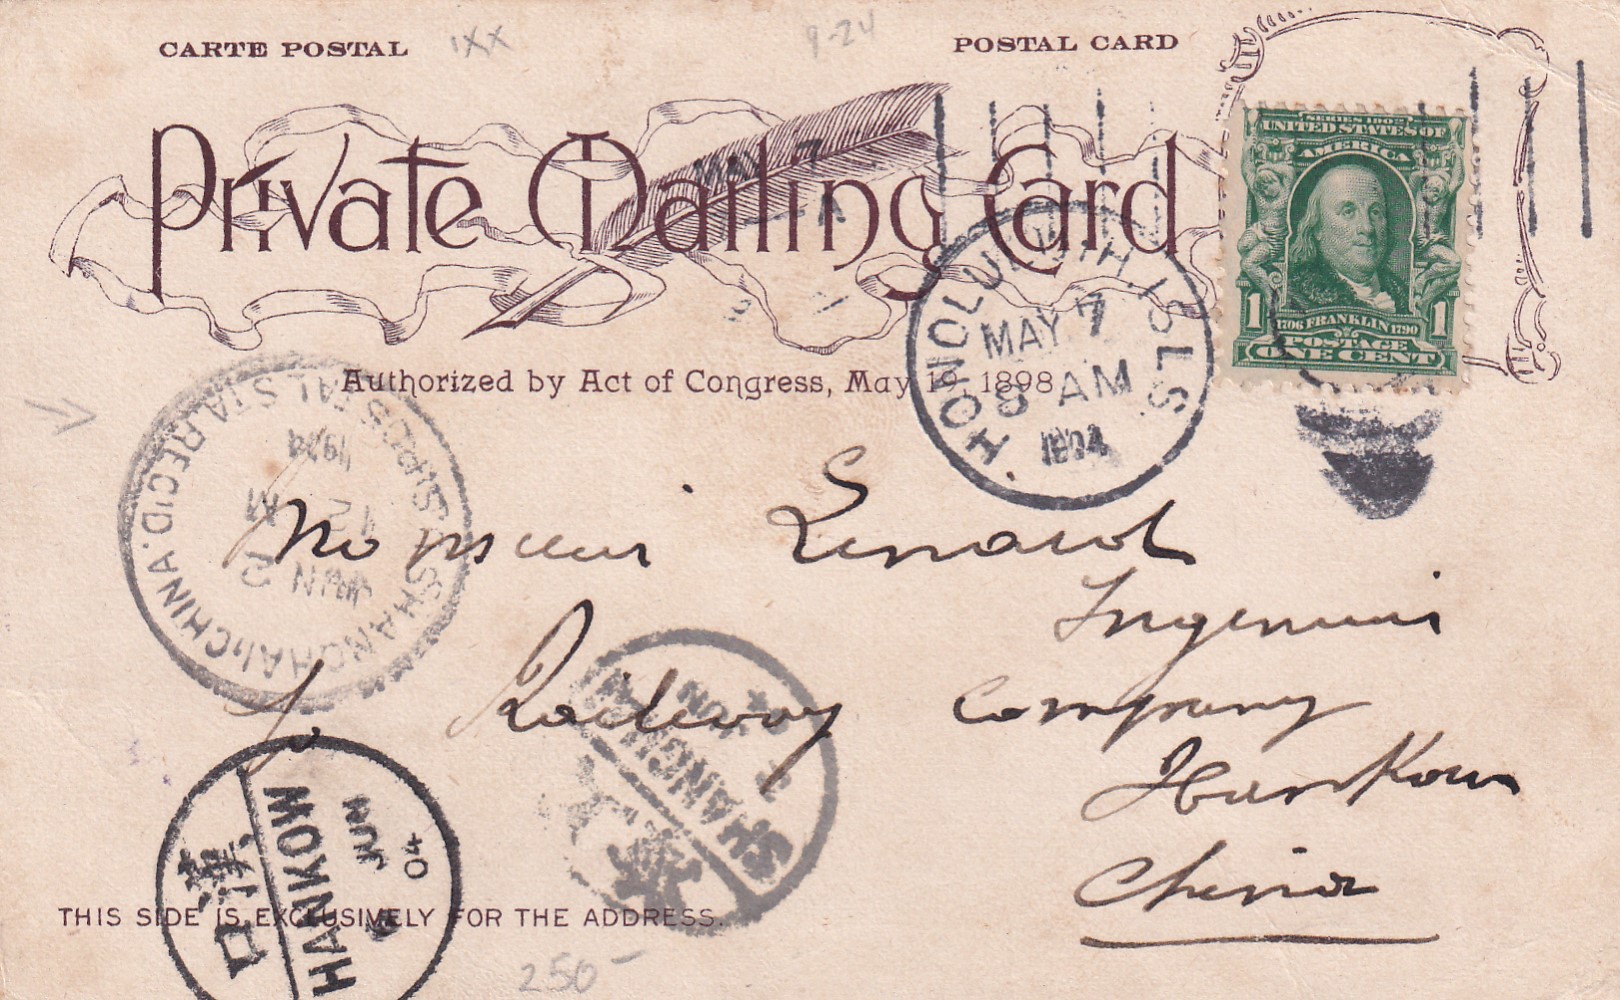 CARTE POSTAL
1XX
9-24
POSTAL CARD
Private Mailing Card
MAY 7
Authorized by Act of Congress, May 19, 1898
SERIES 1902
UNITED STATES OF
AMERICA
1
1706 FRANKLIN 1790
1
POSTAGE
ONE CENT
HONOLULU. H. ISLS.
MAY 7
8 AM
1904
U.S. POSTAL STA.
SHANGHAI CHINA. REC'D.
JUN 2
12 M
1904
Monsieur Lenard
Ingenieur
Railway Company
Hankow
China
SHANGHAI
JUN
HANKOW
JUN
04
漢口
THIS SIDE IS EXCLUSIVELY FOR THE ADDRESS.
250-